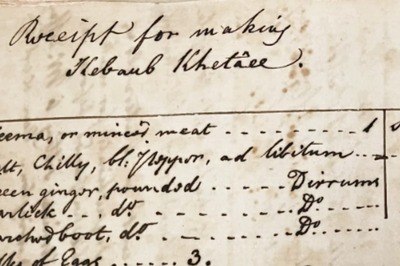 Receipt for making
Kebaub Khetâee.
eema, or minced meat - - - - - - - - 1
lt, Chilly, bl: Pepper, ad libitum - - -
een ginger, pounded - - - - Dirrums
arlick - - do - - - - - - - - Do - - - -
do - - - - - - - - Do - - - -
of Eggs - - - - 3.